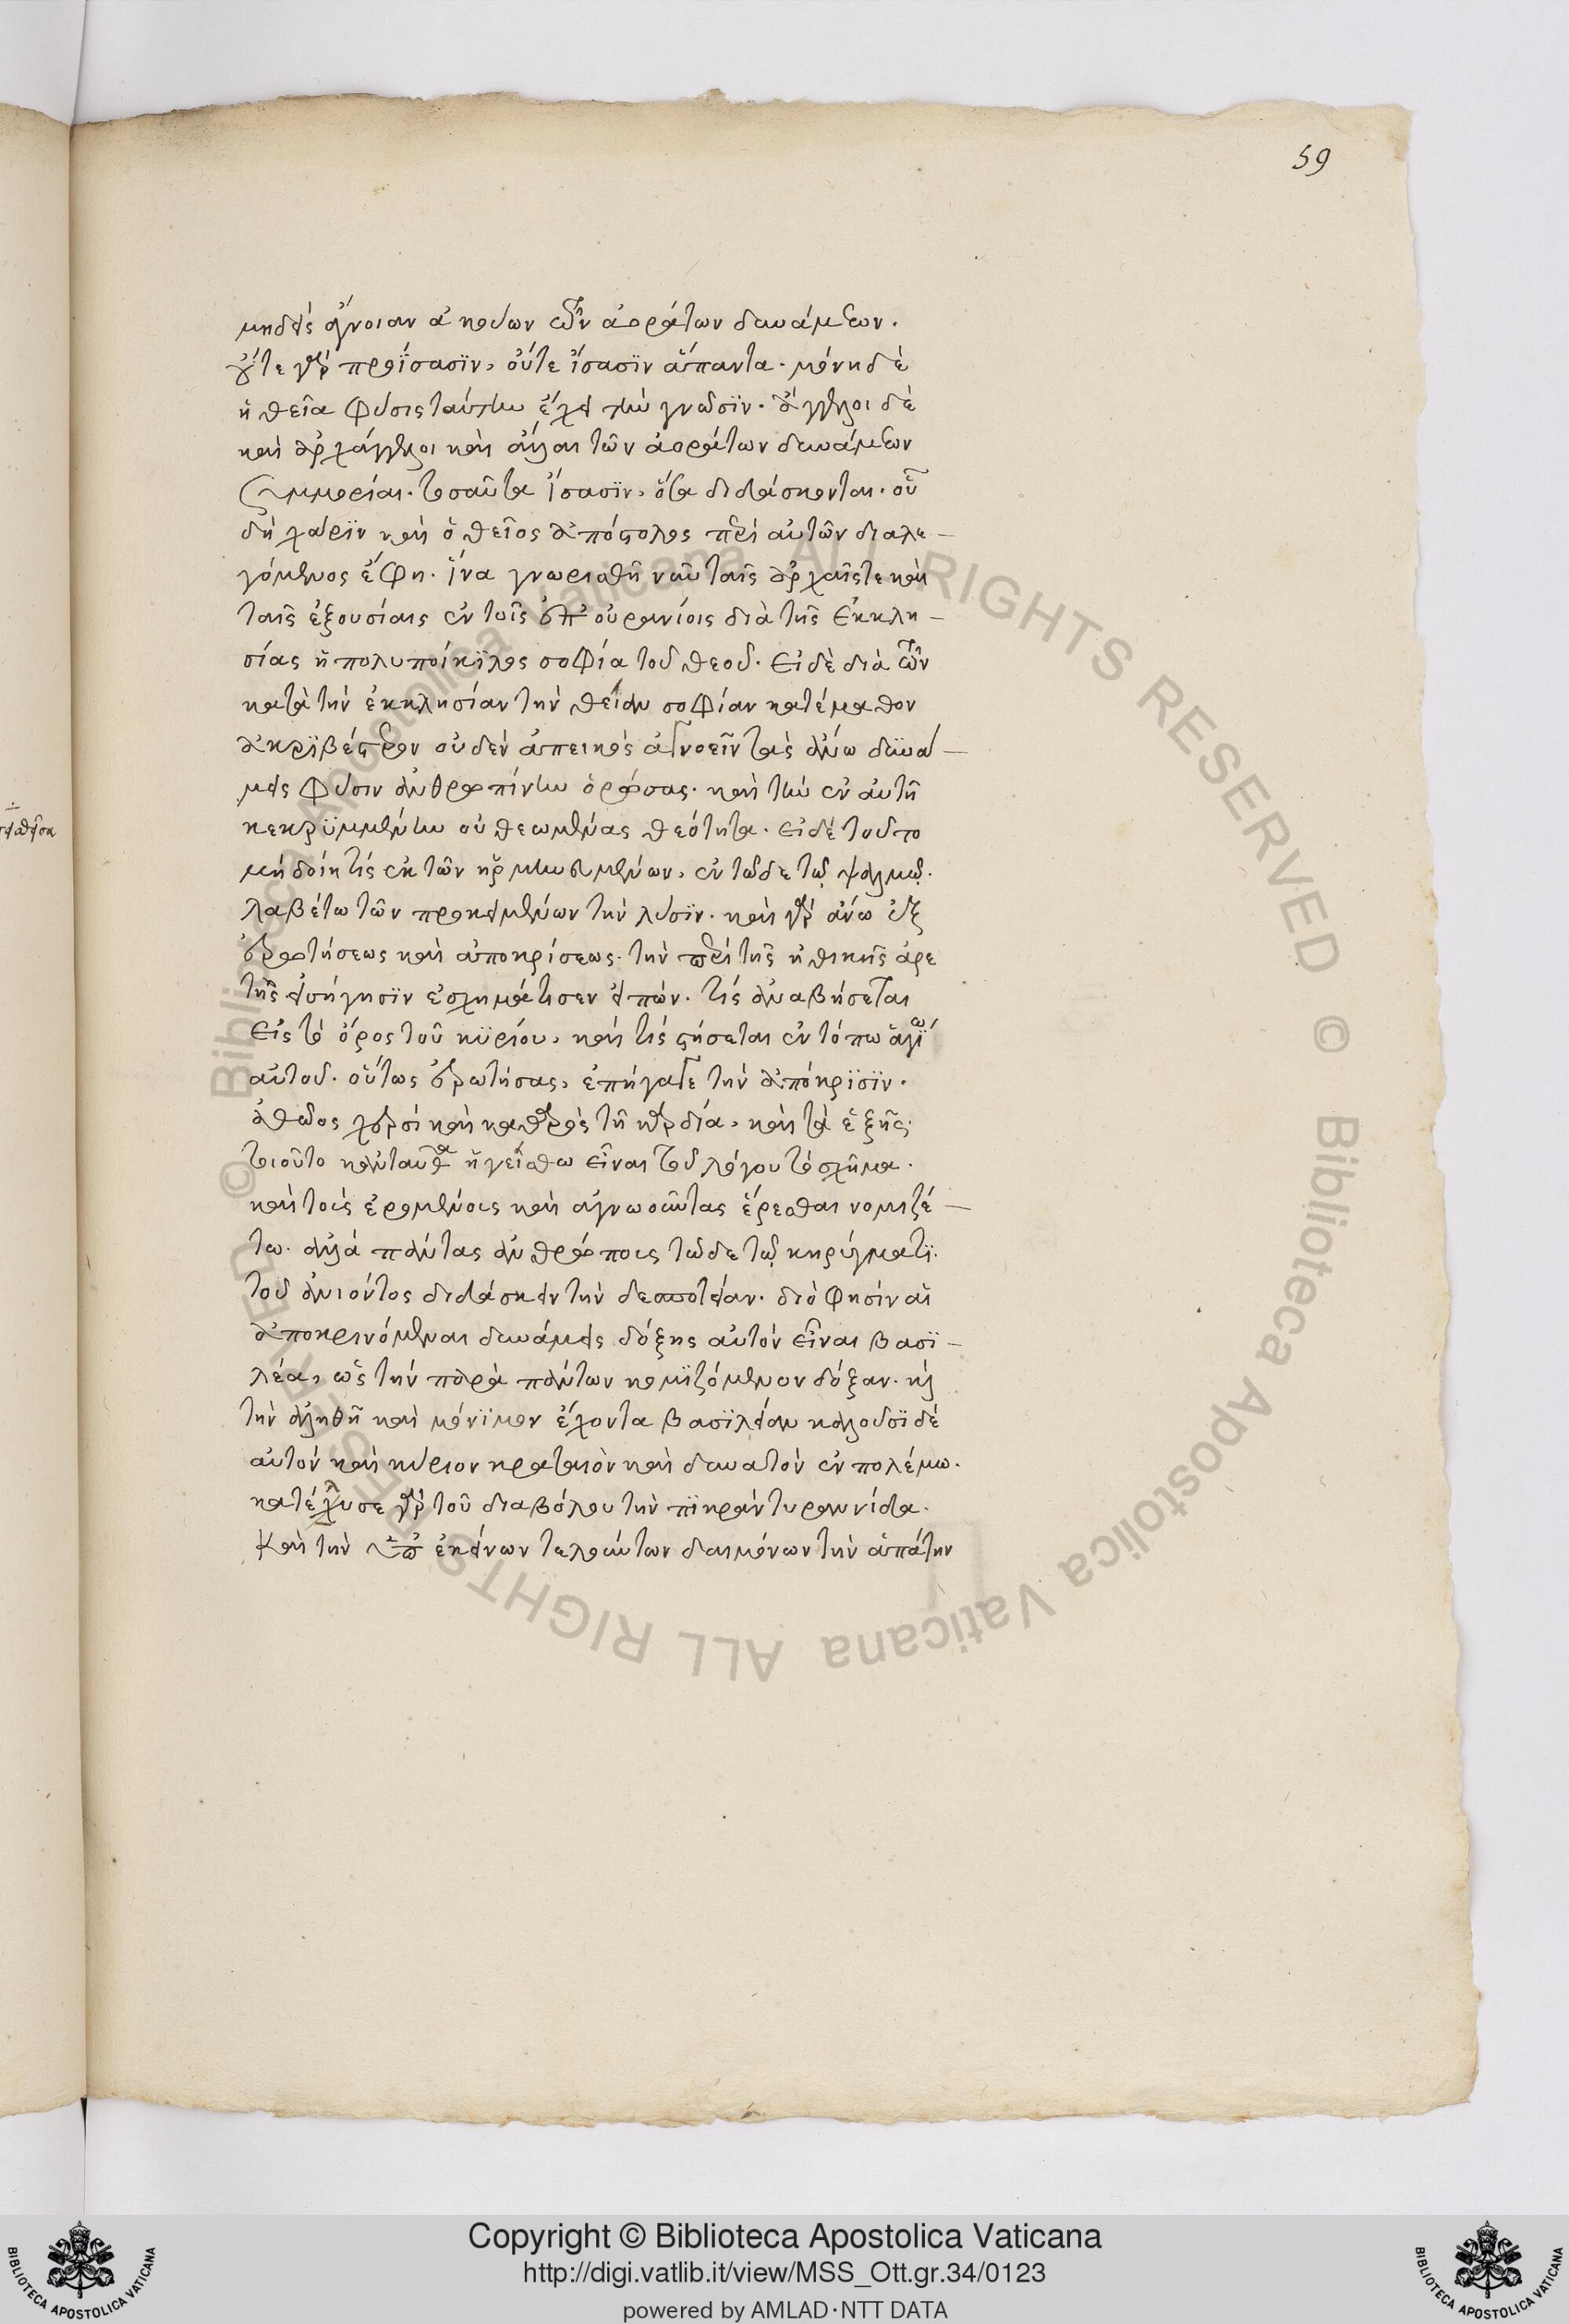 59
μηδεὶς ἄγνοιαν ἀκούων τῶν ἀοράτων δυνάμεων.
οὔτε γὰρ προΐσασϊν, οὔτε ἴσασϊν ἅπαντα. μόνη δὲ
ἡ θεῖα φύσις ταύτην ἔχει τὴν γνῶσϊν. ἄγγελοι δὲ
καὶ ἀρχάγγελοι καὶ ἄλλαι τῶν ἀοράτων δυνάμεων
συμμορίαι. τοσαῦτα ἴσασϊν, ὅσα διδάσκονται. οὗ
δὴ χάρϊν καὶ ὁ θεῖος ἀπόστολος περὶ αὐτῶν διαλε-
γόμενος ἔφη. ἵνα γνωρισθῆ νῦν ταῖς ἀρχαῖς τε καὶ
ταῖς ἐξουσίαις ἐν τοῖς ἐπουρανίοις διὰ τῆς ἐκκλη-
σίας ἡ πολυποίκϊλος σοφία τοῦ θεοῦ. εἰ δὲ διὰ τῶν
κατὰ τὴν ἐκκλησίαν τὴν θείαν σοφίαν κατέμαθον
ἀκρϊβέστερον οὐδὲν ἀπεικὸς ἀγνοεῖν τὰς ἄνω δϋνά-
μεις φύσιν ἀνθρωπίνην ὁρώσας. καὶ τὴν ἐν αὐτῆ
κεκρϋμμένην οὐ θεωμένας θεότητα. εἰ δὲ τοῦτο
μὴ δοίη τίς ἐκ τῶν ἡρμηνευμένων, ἐν τῶδε τῷ ψαλμῷ.
λαβέτω τῶν προκειμένων τὴν λύσϊν. καὶ γὰρ ἄνω ἐξ
ἐρωτήσεως καὶ ἀποκρίσεως. τὴν περὶ τῆς ἠθικῆς ἀρε
τῆς εἰσήγησϊν ἐσχημάτισεν εἰπών. τίς ἀναβήσεται
εἰς τὸ ὄρος τοῦ κϋρίου, καὶ τίς στήσεται ἐν τόπω ἁγίω
αὐτοῦ. οὕτως ἐρωτήσας, ἐπήγαγε τὴν ἀπόκρϊσϊν.
ἀθῶος χερσὶ καὶ καθαρὸς τῆ καρδία, καὶ τὰ ἑξῆς.
τοιοῦτο κἀνταῦθα ἡγεῖσθω εἶναι τοῦ λόγου τὸ σχῆμα.
καὶ τοὺς ἐρομένοις καὶ ἀγνωοῦντας ἔρεσθαι νομιζέ-
τω. ἀλλὰ πάντας ἀνθρώποις τῶδε τῷ κηρύγματϊ.
τοῦ ἀνιόντος διδάσκειν τὴν δεσποτείαν. διὸ φησὶν αἱ
ἀποκρινόμεναι δυνάμεις δόξης αὐτὸν εἶναι βασϊ-
λέα, ὡς τὴν παρὰ πάντων κομϊζόμενον δόξαν. καὶ
τὴν ἀληθῆ καὶ μόνϊμον ἔχοντα βασϊλείαν καλοῦσϊ δὲ
αὐτὸν καὶ κύριον κραταιὸν καὶ δυνατὸν ἐν πολέμω.
κατέλυσε γὰρ τοῦ διαβόλου τὴν πϊκρὰν τυραννίδα.
καὶ τὴν ὑπ' ἐκείνων τελούντων δαιμόνων τὴν ἀπάτην
Copyright © Biblioteca Apostolica Vaticana
http://digi.vatlib.it/view/MSS_Ott.gr.34/0123
powered by AMLAD·NTT DATA